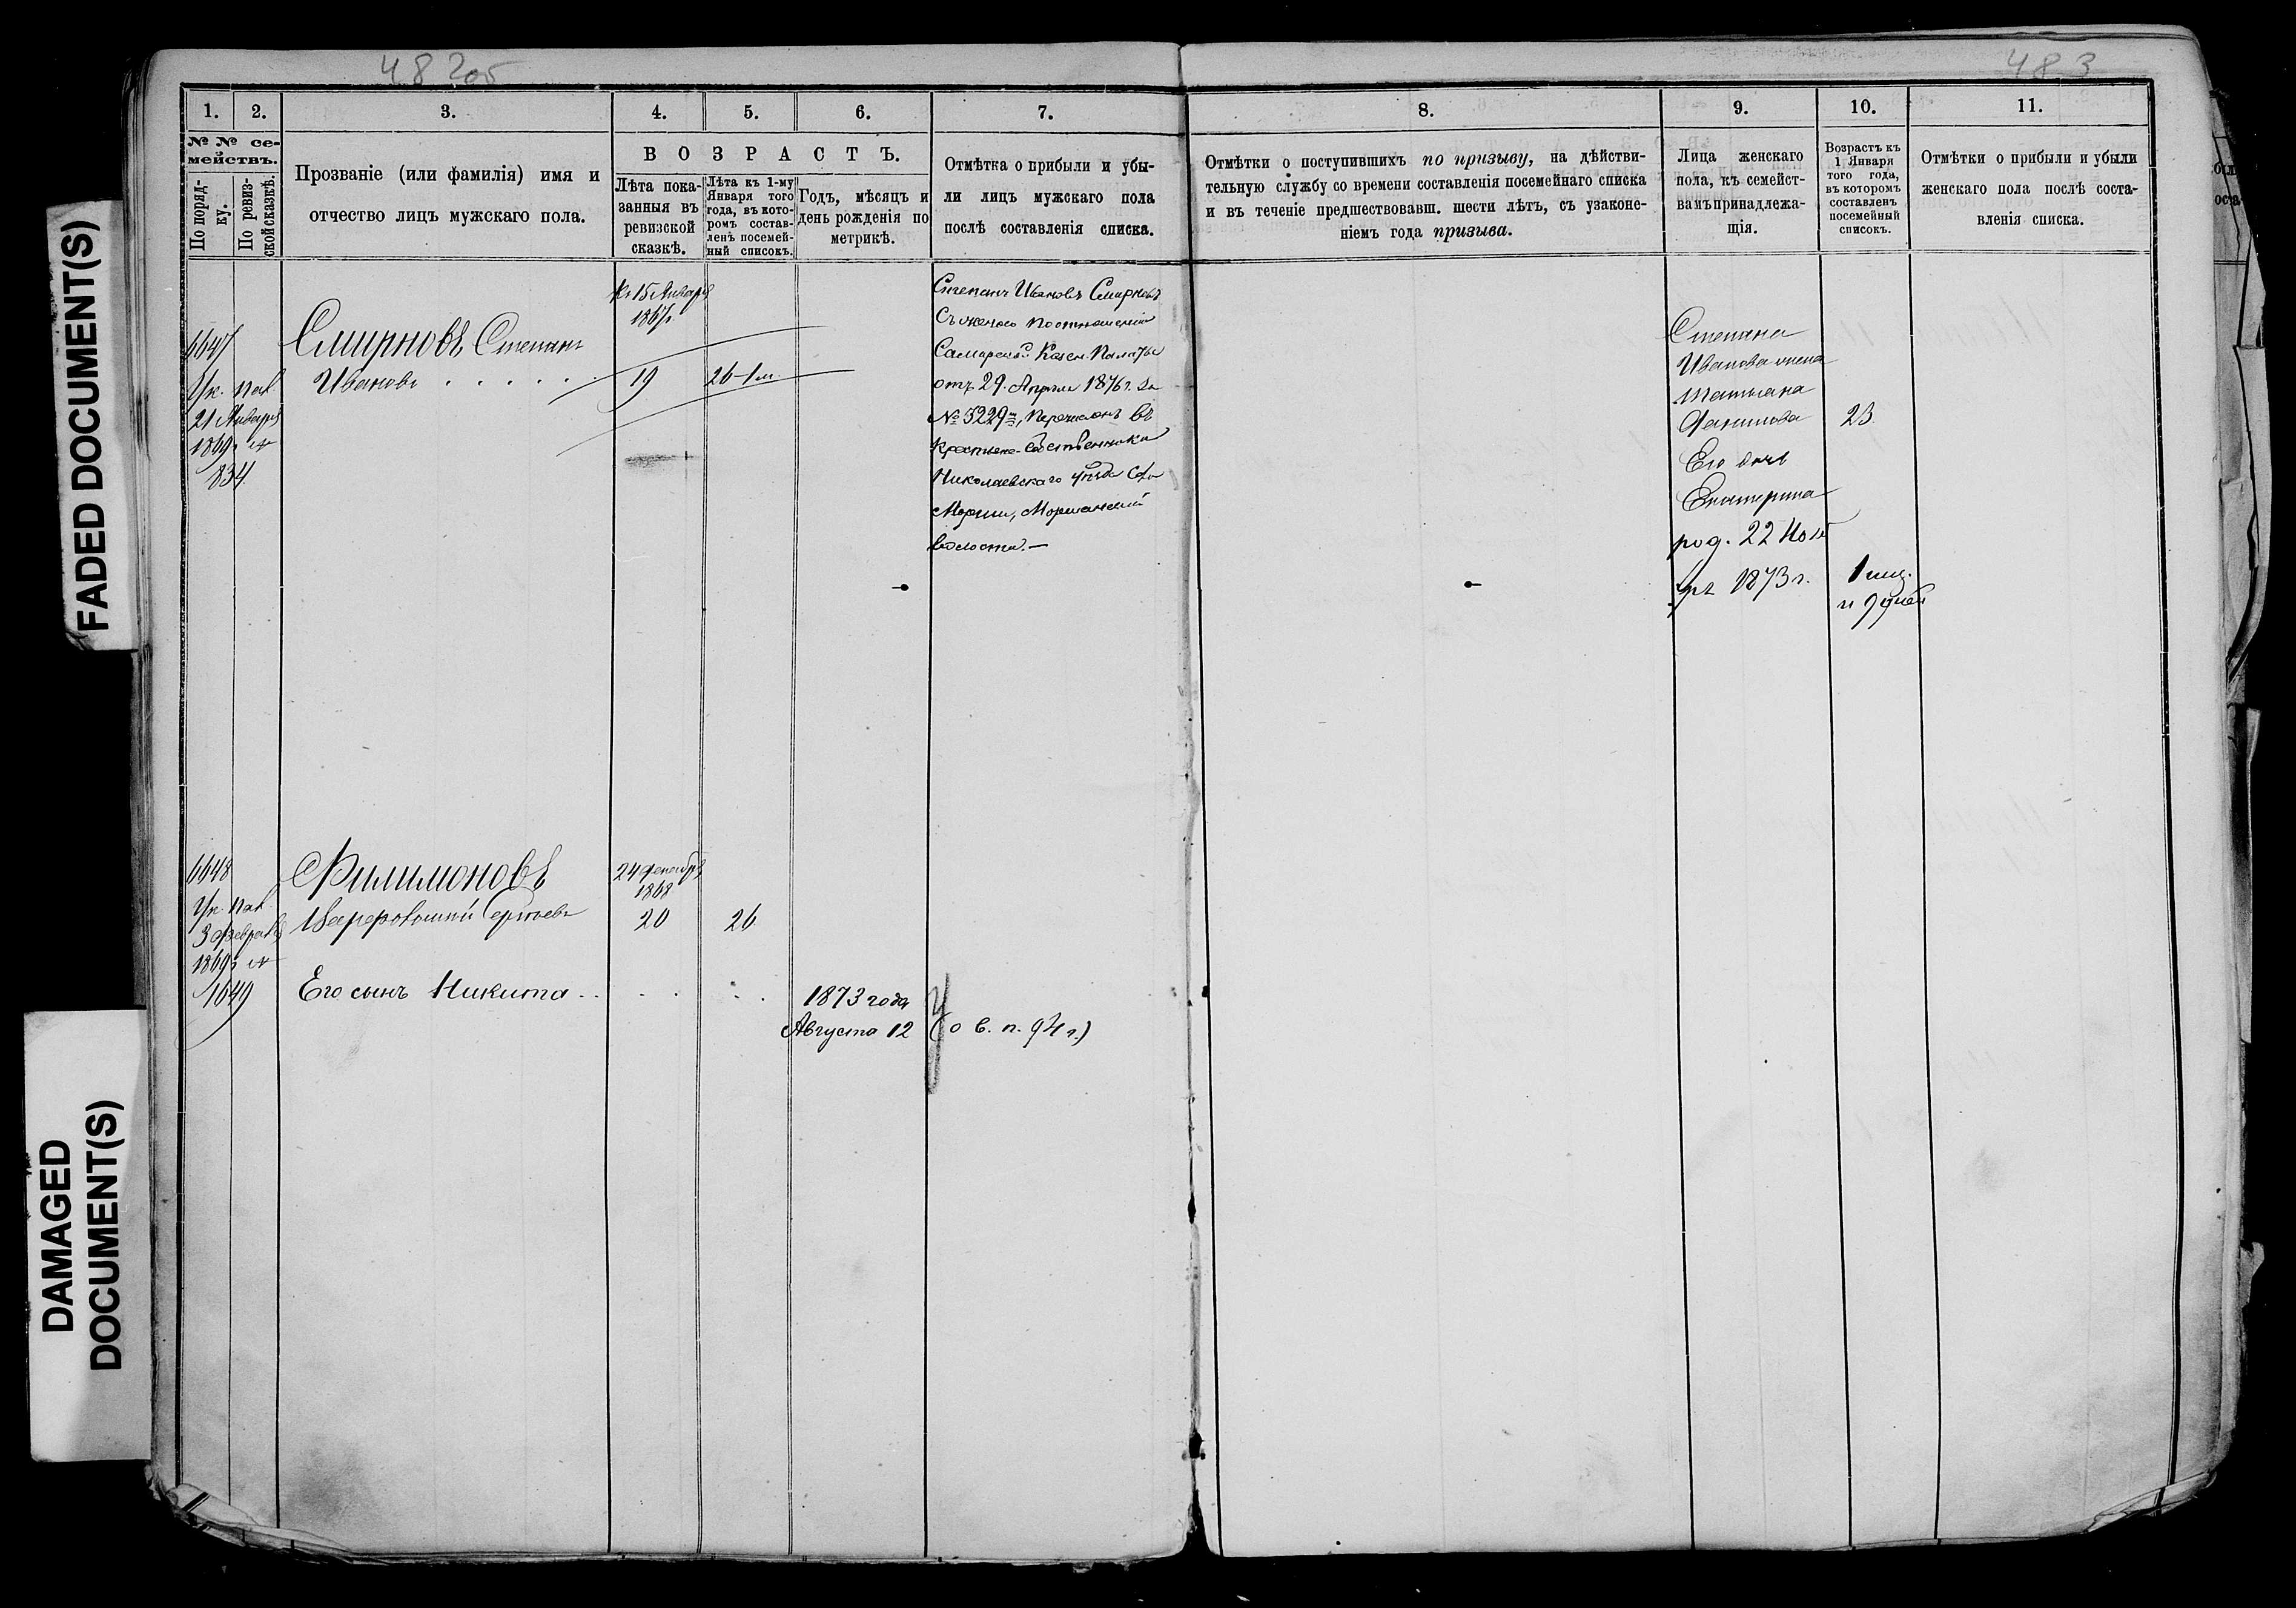 482об
483
1.
2.
3.
4.
5.
6.
7.
8.
9.
10.
11.
№ № се-
мействъ.
По поряд-
ку.
По ревиз-
ской сказкѣ.
Прозваніе (или фамилія) имя и
отчество лицъ мужскаго пола.
ВОЗРАСТЪ.
Лѣта пока-
занныя въ
ревизской
сказкѣ.
Лѣта къ 1-му
Января того
года, въ кото-
ромъ состав-
ленъ посемей-
ный списокъ.
Годъ, мѣсяцъ и
день рожденія по
метрикѣ.
Отмѣтка о прибыли и убы-
ли лицъ мужскаго пола
послѣ составленія списка.
Отмѣтки о поступившихъ по призыву, на дѣйстви-
тельную службу со времени составленія посемейнаго списка
и въ теченіе предшествовавш. шести лѣтъ, съ узаконе-
ніемъ года призыва.
Лица женскаго
пола, къ семейст-
вамъ принадлежа-
щія.
Возрастъ къ
1 Января
того года,
въ которомъ
составленъ
посемейный
списокъ.
Отмѣтки о прибыли и убыли
женскаго пола послѣ соста-
вленія списка.
6647
Ук. пал.
21 Января
1869 г. №
834
Смирновъ Степанъ
Ивановъ
Къ 15 Января
1867 г.
19
26-1 м.
Степанъ Ивановъ Смирновъ
съ женою по отношенію
Самарской Казен. Палаты
отъ 29 Апрѣля 1876 г. за
№ 5229, перечисленъ въ
крестьяне-собственники
Николаевскаго уѣзда села
Морши, Моршанской
волости.—
Степана
Иванова жена
Татьяна
Данилова
23
Его дочь
Екатерина
род. 22 Нояб
ря 1873 г.
1 мѣс.
и 9 дней
6648
Ук. пал.
3 Февраля
1869 г. №
1649
Филимоновъ
Сергѣевъ
24 Декабря
1868
20
26
Его сынъ Никита
1873 года
Августа 12
(о в. п. 94 г.)
FADED DOCUMENT(S)
DAMAGED
DOCUMENT(S)